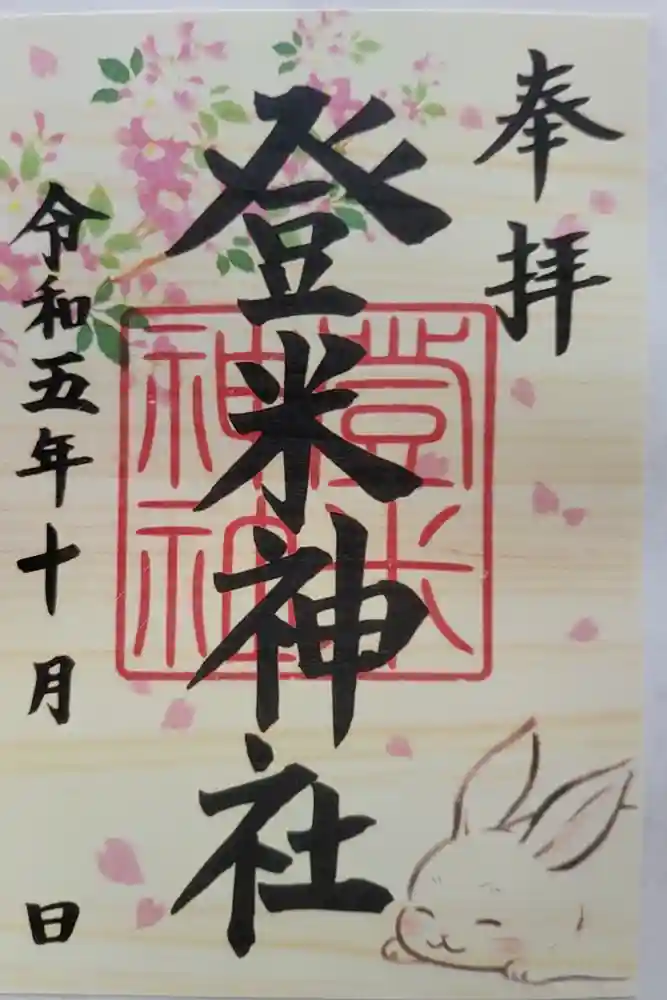 奉拝
登米神社
登米神社
令和五年十月 日